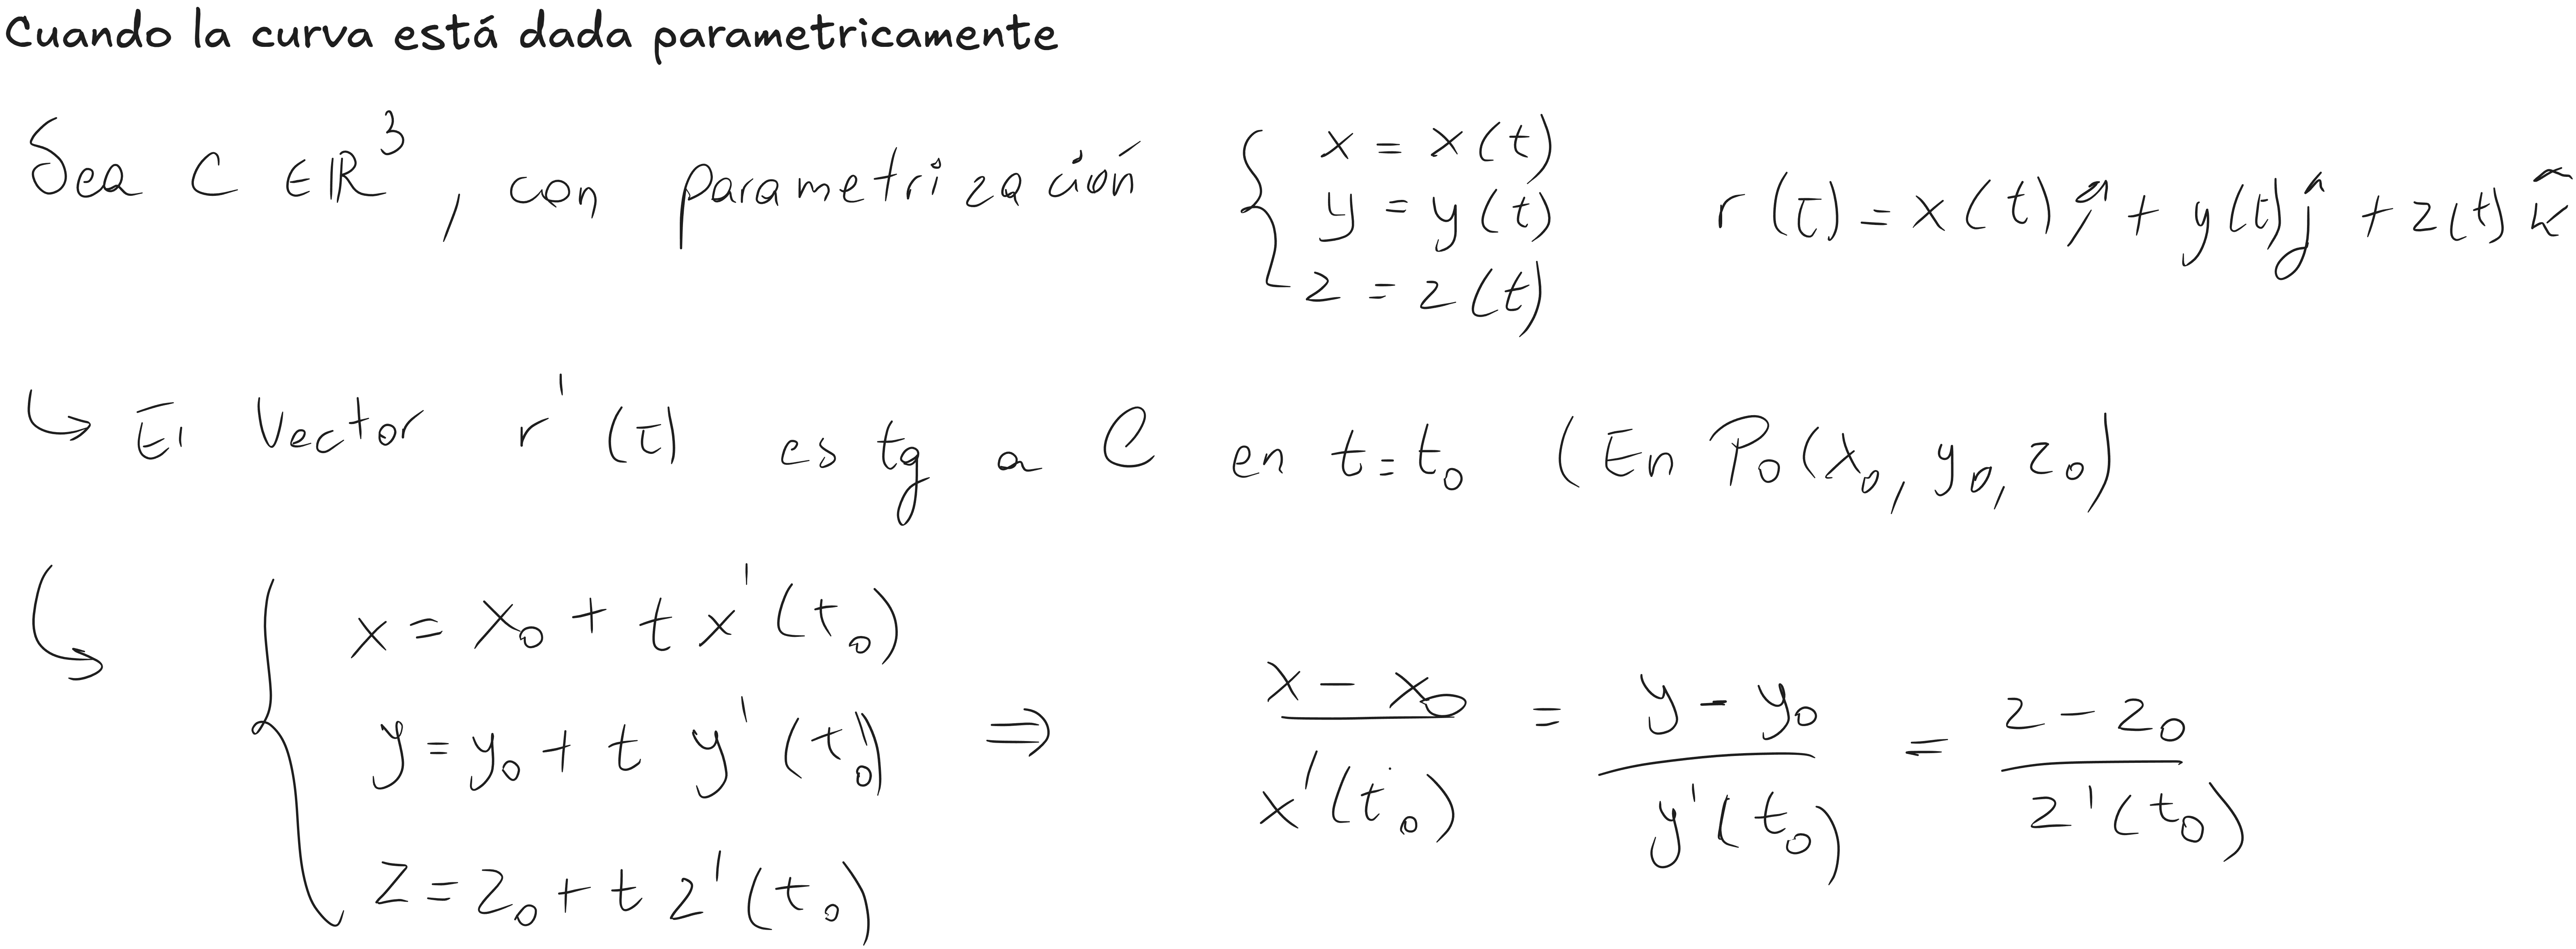 Cuando la curva está dada parametricamente
Sea C ∈ ℝ³, con parametrización { x = x(t) y = y(t) z = z(t) r(t) = x(t) î + y(t) ĵ + z(t) k̂
↳ El Vector r'(t) es tg a C en t=t₀ (En P₀(x₀, y₀, z₀)
↳ { x = x₀ + t x'(t₀)
y = y₀ + t y'(t₀) ⇒ (x - x₀)/x'(t₀) = (y - y₀)/y'(t₀) = (z - z₀)/z'(t₀)
z = z₀ + t z'(t₀)